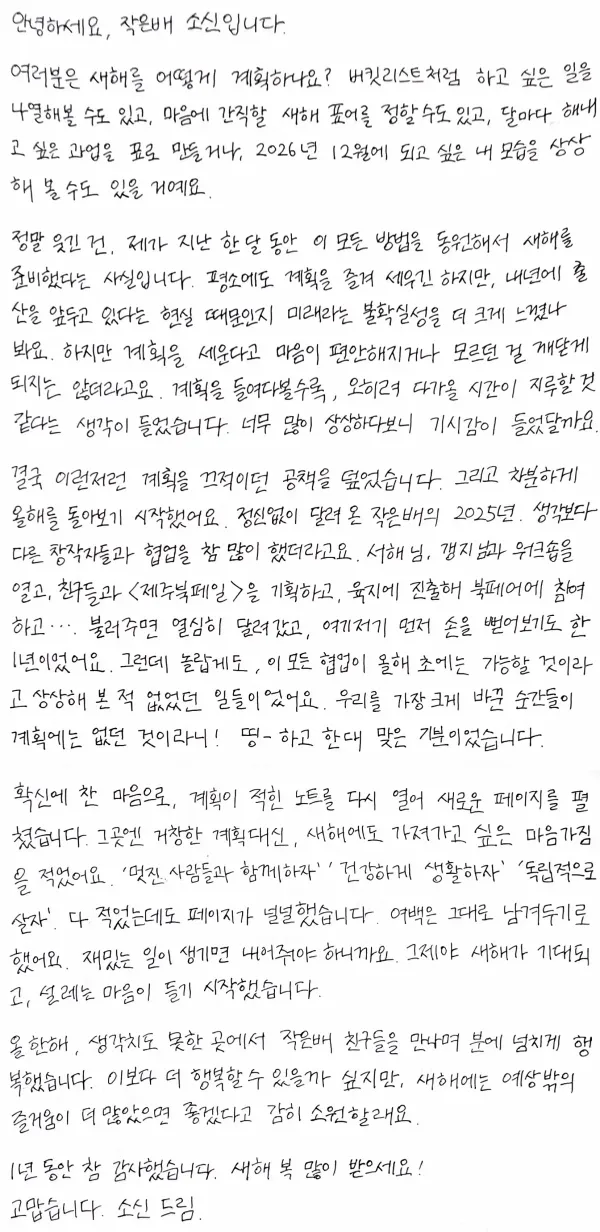 안녕하세요, 작은배 소신입니다.
여러분은 새해를 어떻게 계획하나요? 버킷리스트처럼 하고 싶은 일을
나열해볼 수도 있고, 마음에 간직할 새해 표어를 정할 수도 있고, 달마다 해내
고 싶은 과업을 표로 만들거나, 2026년 12월에 되고 싶은 내 모습을 상상
해 볼 수도 있을 거예요.
정말 웃긴 건, 제가 지난 한 달 동안 이 모든 방법을 동원해서 새해를
준비했다는 사실입니다. 평소에도 계획을 즐겨 세우긴 하지만, 내년에 출
산을 앞두고 있다는 현실 때문인지 미래라는 불확실성을 더 크게 느꼈나
봐요. 하지만 계획을 세운다고 마음이 편안해지거나 모르던 걸 깨닫게
되지는 않더라고요. 계획을 들여다볼수록, 오히려 다가올 시간이 지루할 것
같다는 생각이 들었습니다. 너무 많이 상상하다보니 기시감이 들었달까요.
결국 이런저런 계획을 끄적이던 공책을 덮었습니다. 그리고 차분하게
올해를 돌아보기 시작했어요. 정신없이 달려 온 작은배의 2025년. 생각보다
다른 창작자들과 협업을 참 많이 했더라고요. 서해 님, 갱지 님과 워크숍을
열고, 친구들과 <제주북페일>을 기획하고, 육지에 진출해 북페어에 참여
하고…. 불러주면 열심히 달려갔고, 여기저기 먼저 손을 뻗어보기도 한
1년이었어요. 그런데 놀랍게도, 이 모든 협업이 올해 초에는 가능할 것이라
고 상상해 본 적 없었던 일들이었어요. 우리를 가장 크게 바꾼 순간들이
계획에는 없던 것이라니! 띵- 하고 한 대 맞은 기분이었습니다.
확신에 찬 마음으로, 계획이 적힌 노트를 다시 열어 새로운 페이지를 펼
쳤습니다. 그곳엔 거창한 계획 대신, 새해에도 가져가고 싶은 마음가짐
을 적었어요. '멋진 사람들과 함께하자' '건강하게 생활하자' '독립적으로
살자'. 다 적었는데도 페이지가 널널했습니다. 여백은 그대로 남겨두기로
했어요. 재밌는 일이 생기면 내어줘야 하니까요. 그제야 새해가 기대되
고, 설레는 마음이 들기 시작했습니다.
올 한해, 생각치도 못한 곳에서 작은배 친구들을 만나며 분에 넘치게 행
복했습니다. 이보다 더 행복할 수 있을까 싶지만, 새해에는 예상 밖의
즐거움이 더 많았으면 좋겠다고 감히 소원할래요.
1년 동안 참 감사했습니다. 새해 복 많이 받으세요!
고맙습니다. 소신 드림.